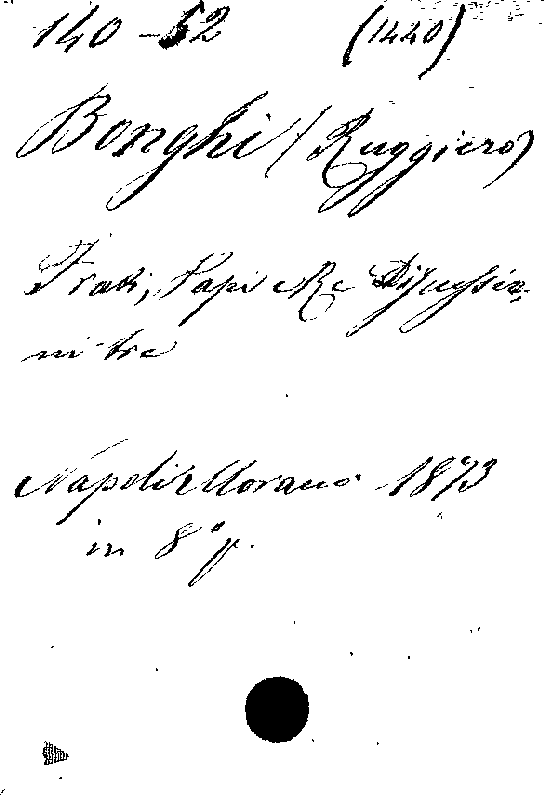 140-52 (1440)
Bonghi (Ruggiero)
Frati, Papi e Re Discussio-
ni tre
Napoli Morano 1873
in 8° p.